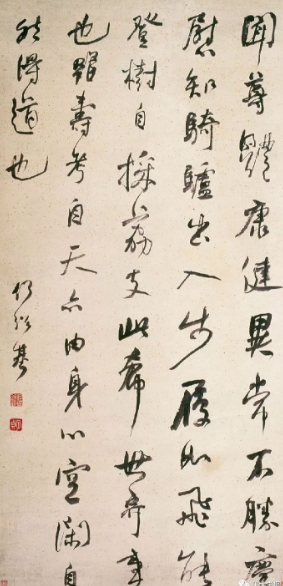 聞尊體康健異常不勝慶
慰知騎驢出入步履如飛能
登樹自採荔支此希世奇事
也壽考自天亦由身心空闊自
然得道也
何紹基